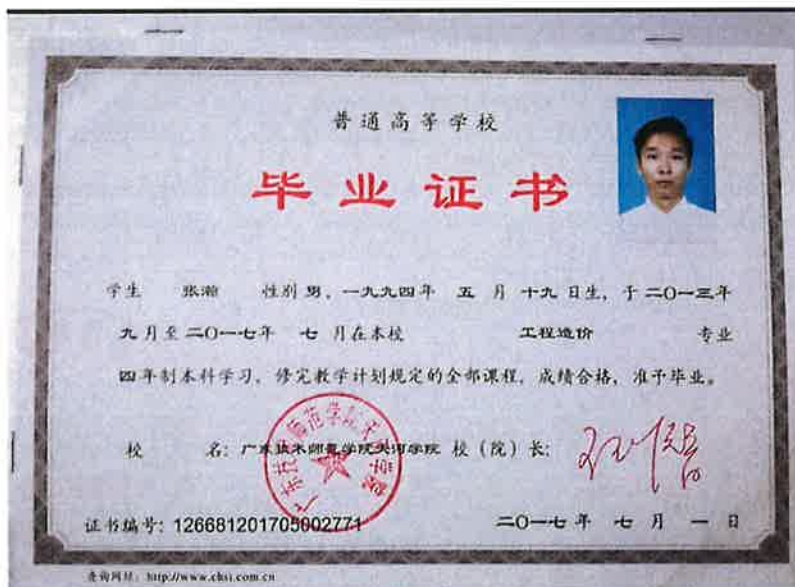 普通高等学校
毕业证书
学生 张瀚 性别 男，一九九四年 五 月 十九 日生，于 二〇一三年
九 月至 二〇一七年 七 月在本校 工程造价 专业
四 年制本科学习，修完教学计划规定的全部课程，成绩合格，准予毕业。
校 名：广东技术师范学院天河学院 校（院）长：
证书编号：126681201705002771 二〇一七 年 七 月 一 日
查询网址：http://www.chsi.com.cn